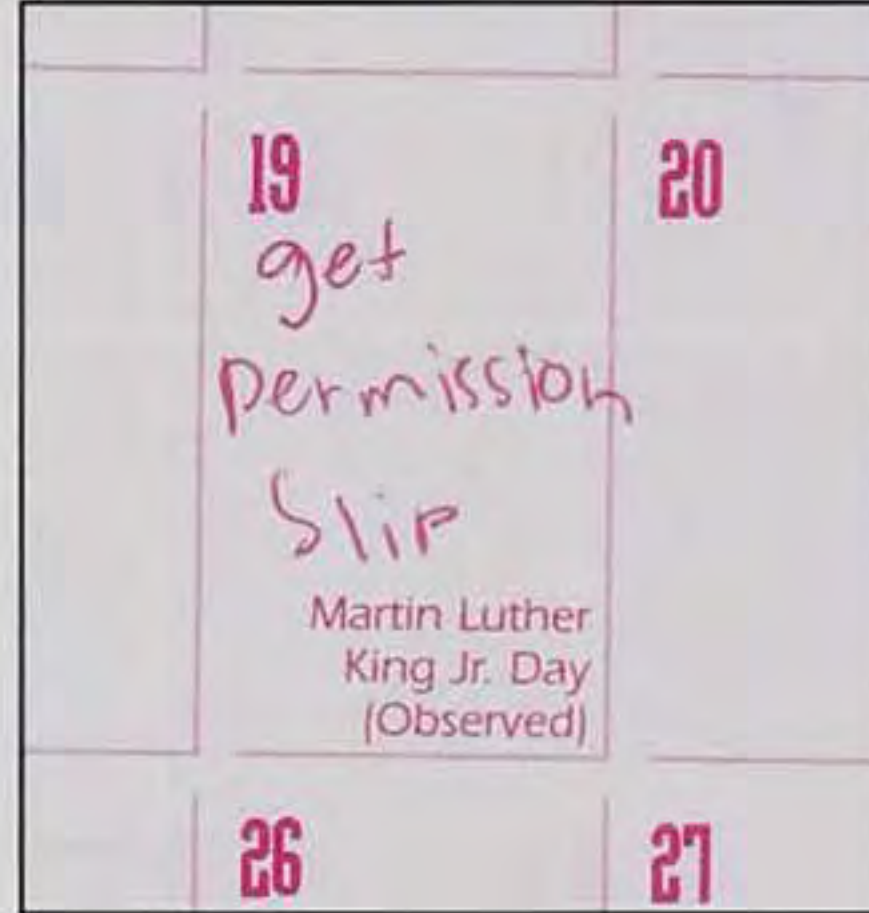 19
get
permission
slip
Martin Luther
King Jr. Day
(Observed)
20
26
27